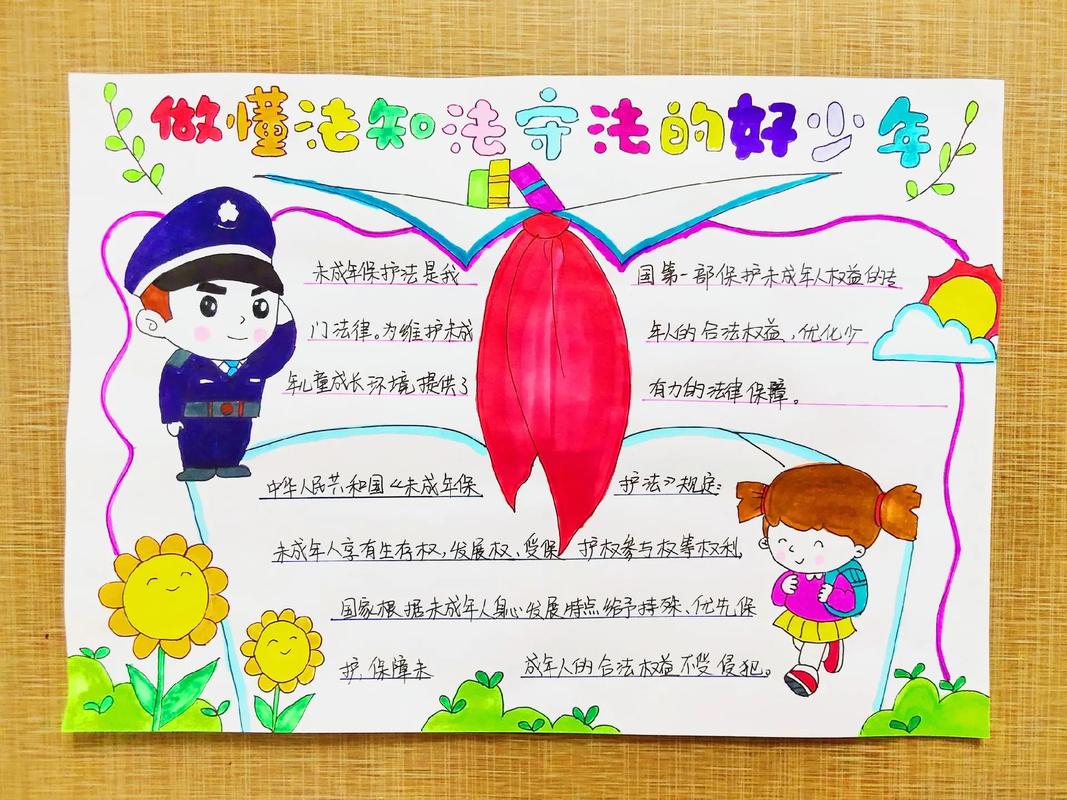 做懂法知法守法的好少年
未成年保护法是我国第一部保护未成年人权益的专
门法律。为维护未成年人的合法权益,优化少
年儿童成长环境提供了有力的法律保障。
中华人民共和国《未成年保护法》规定:
未成年人享有生存权,发展权、受保护权参与权等权利,
国家根据未成年人身心发展特点给予特殊、优先保
护,保障未成年人的合法权益不受侵犯。